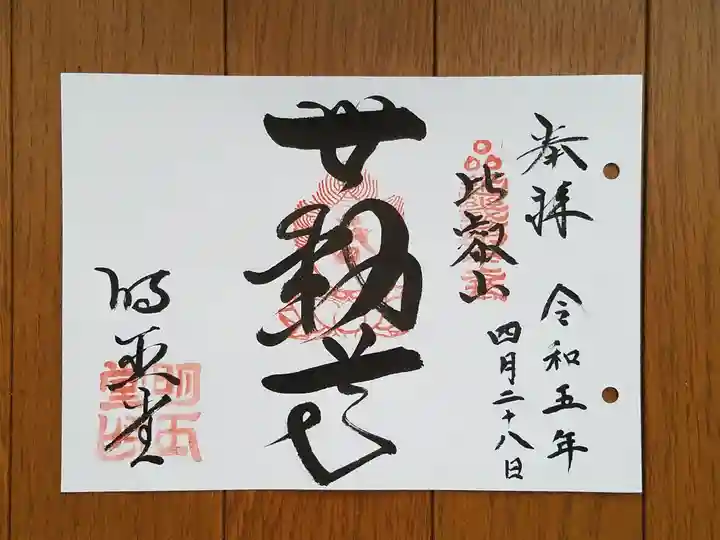 奉拝
令和五年
四月二十八日
比叡山
無動尊
明王堂
明王堂印